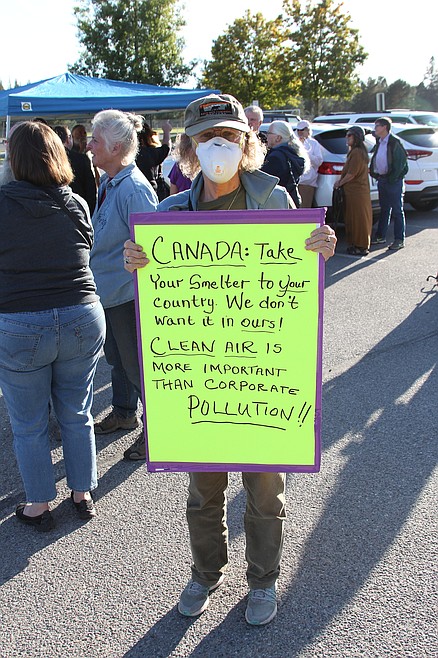 CANADA: Take
Your Smelter to your
country. We don't
want it in ours!
CLEAN AIR IS
MORE IMPORTANT
THAN CORPORATE
POLLUTION!!